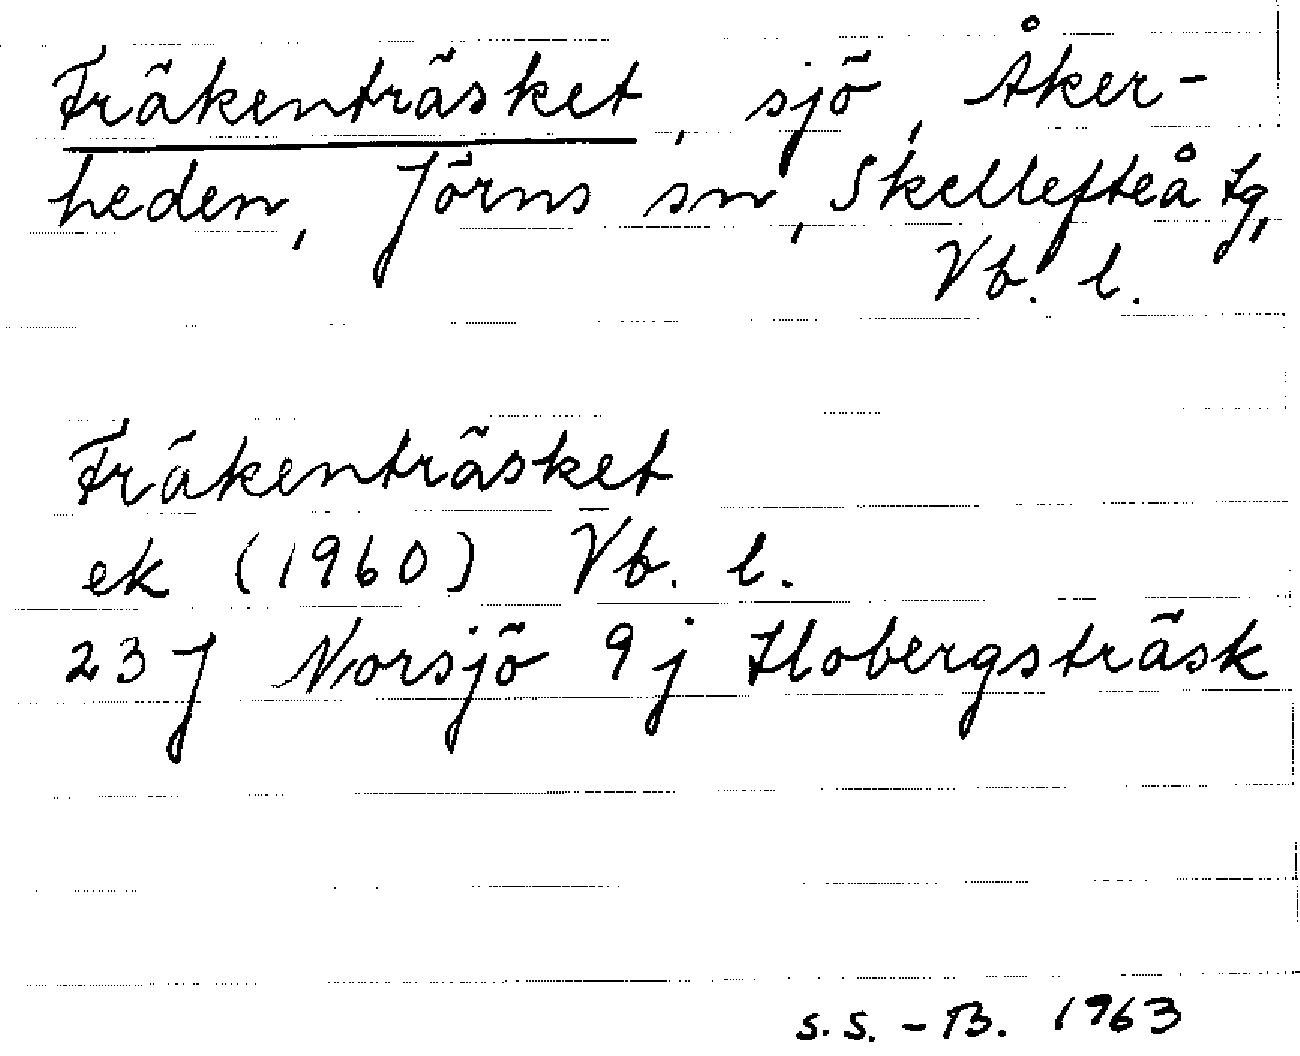 Fräkenträsket, sjö, Åker-
heden, Jörns sn, Skellefteå tg,
Vb. l.
Fräkenträsket
ek (1960) Vb. l.
23 J Norsjö 9 j Flobergsträsk
S.S. - B. 1963